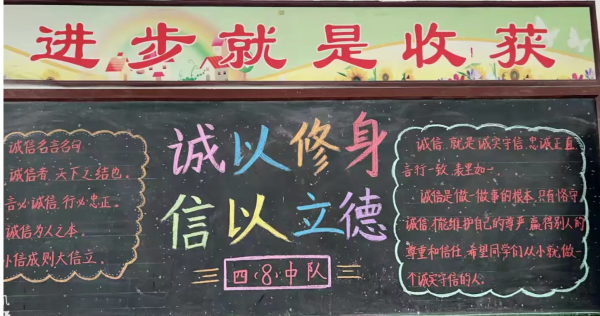 进步就是收获
诚信名言名句
诚信者，天下之结也。
言必诚信，行必忠正。
诚信为人之本。
小信成则大信立。
诚以修身
信以立德
四·8·中队
诚信，就是诚实守信，忠诚正直
言行一致，表里如一。
诚信是做一做事的根本，只有恪守
诚信，才能维护自己的尊严，赢得别人的
尊重和信任，希望同学们从小就做一
个诚实守信的人。